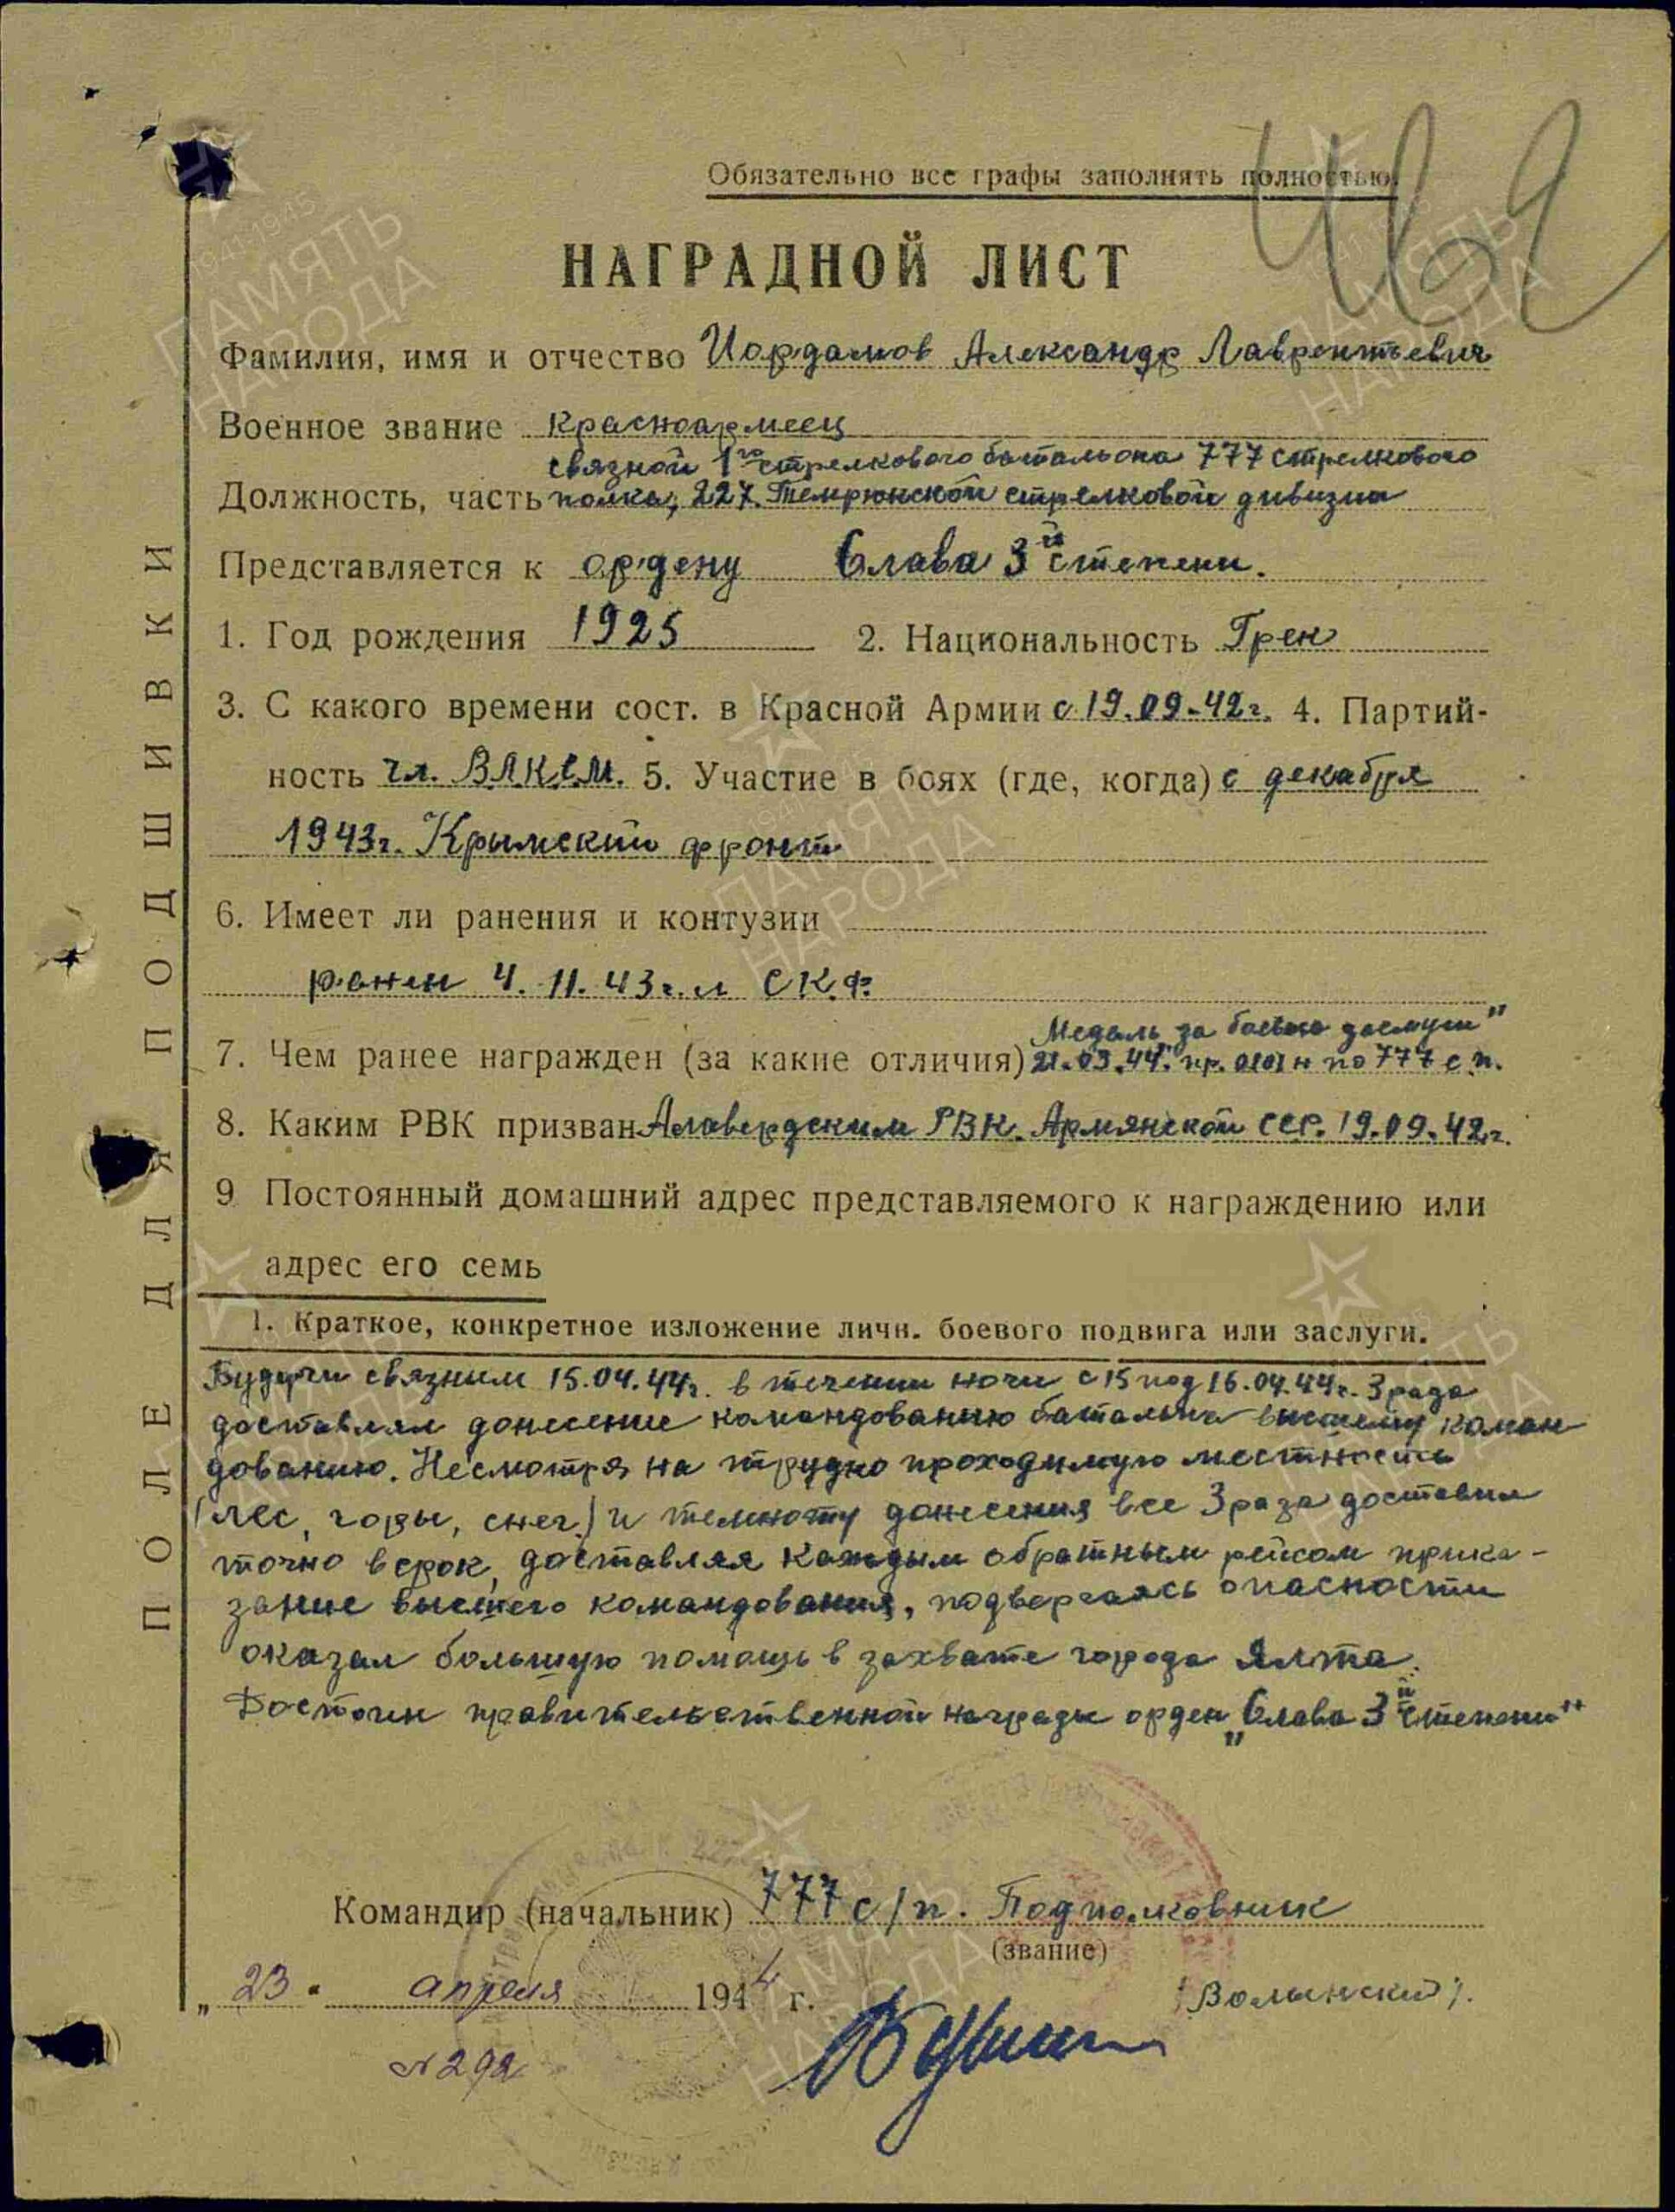 462
Обязательно все графы заполнять полностью.
НАГРАДНОЙ ЛИСТ
Фамилия, имя и отчество Иорданов Александр Лаврентьевич
Военное звание красноармеец
связной 1го стрелкового батальона 777 стрелкового
Должность, часть полка, 227 Темрюкской стрелковой дивизии
Представляется к ордену Слава 3й степени.
1. Год рождения 1925 2. Национальность Грек
3. С какого времени сост. в Красной Армии с 19.09.42г. 4. Партий-
ность чл. ВЛКСМ. 5. Участие в боях (где, когда) с декабря
1943г. Крымский фронт
6. Имеет ли ранения и контузии
ранен 4.11.43г. СКФ
7. Чем ранее награжден (за какие отличия) Медаль за боевые заслуги"
21.03.44. пр. 0101 н по 777 с.п.
8. Каким РВК призван Алавердским РВК. Армянской ССР. 19.09.42г.
9 Постоянный домашний адрес представляемого к награждению или
адрес его семь
1. Краткое, конкретное изложение личн. боевого подвига или заслуги.
Будучи связным 15.04.44г. в течении ночи с 15 под 16.04.44г. 3 раза
доставлял донесение командованию батальона высшему коман
дованию. Несмотря на трудно проходимую местность
(лес, горы, снег) и темноту донесения все 3 раза доставил
точно в срок, доставляя каждым обратным рейсом прика-
зание высшего командования, подвергаясь опасности
оказал большую помощь в захвате города Ялта.
Достоин правительственной награды орден „Слава 3й степени"
Командир (начальник) 777 с/п. Подполковник
(звание)
„ 23 " апреля 1944 г.
/Волынский/.
N 292
ПОЛЕ ДЛЯ ПОДШИВКИ
ПАМЯТЬ НАРОДА
1941-1945